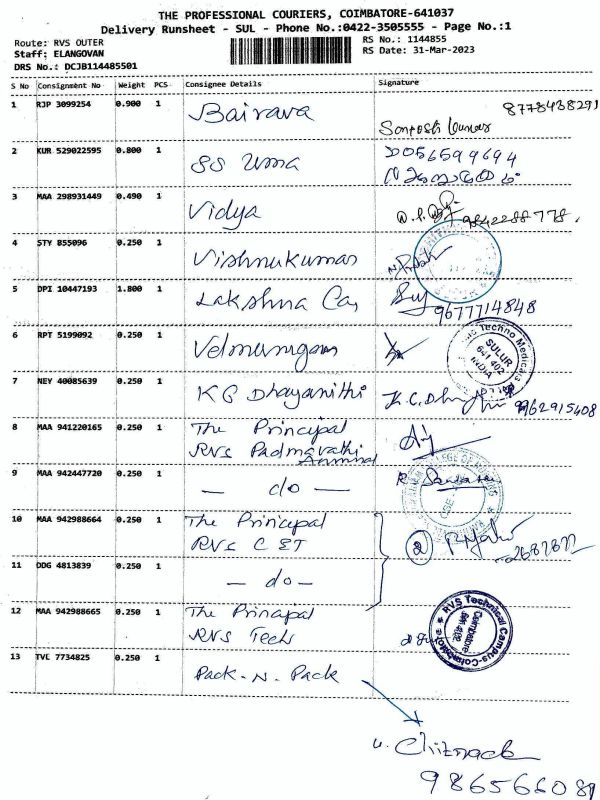 THE PROFESSIONAL COURIERS, COIMBATORE-641037
Delivery Runsheet - SUL - Phone No.:0422-3505555 - Page No.:1
Route: RVS OUTER
RS No.: 1144855
Staff: ELANGOVAN
RS Date: 31-Mar-2023
DRS No.: DCJB114485501
S No Consignment No Weight PCS Consignee Details Signature
1 RJP 3099254 0.900 1 Bairava 8778438291
Santosh Kumar
2 KUR 529022595 0.800 1 SS Uma
3 MAA 298931449 0.490 1 Vidya 9842288778.
4 STY 855096 0.250 1 Vishnukumar
5 DPI 10447193 1.800 1 Lakshna Car 9677714848
6 RPT 5199092 0.250 1 Velmurugan
Techno Medicals
SULUR
641 402
INDIA
7 NEY 40085639 0.250 1 KG Dhayanithi 9962915408
8 MAA 941220165 0.250 1 The Principal
RVS Padmavathi
Ammal
9 MAA 942447720 0.250 1 — do —
10 MAA 942988664 0.250 1 The Principal
RVS CET
2
11 ODG 4813839 0.250 1 — do —
12 MAA 942988665 0.250 1 The Principal
RVS Tech
RVS Technical Campus-Coimbatore
Coimbatore
641 402
13 TVL 7734825 0.250 1 Pack-N-Pack